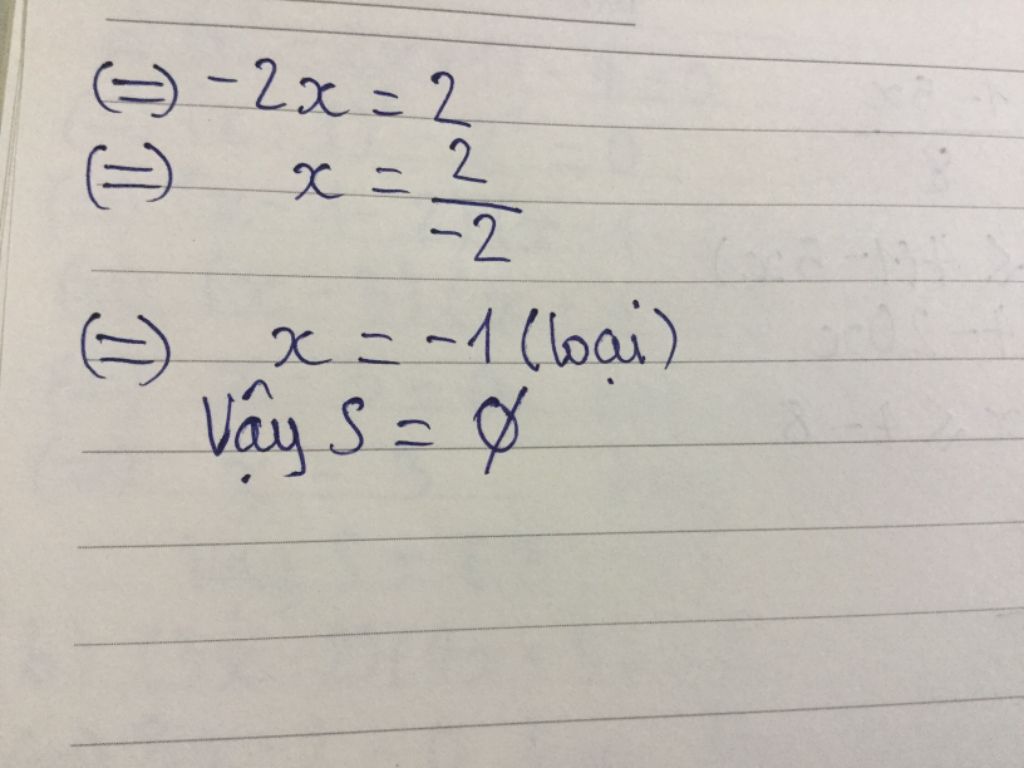 (=) -2x = 2
(=) x = 2/-2
(=) x = -1 (loại)
Vậy S = ∅